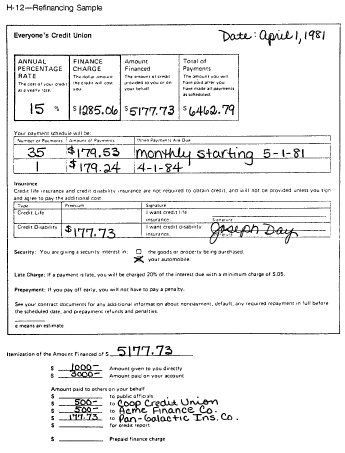 H-12—Refinancing Sample
Everyone's Credit Union
Date: April 1, 1981
ANNUAL PERCENTAGE RATE
The cost of your credit as a yearly rate.
15 %
FINANCE CHARGE
The dollar amount the credit will cost you.
$1285.06
Amount Financed
The amount of credit provided to you or on your behalf.
$5177.73
Total of Payments
The amount you will have paid after you have made all payments as scheduled.
$6462.79
Your payment schedule will be:
Number of Payments Amount of Payments When Payments Are Due
35 $179.53 monthly starting 5-1-81
1 $179.24 4-1-84
Insurance
Credit life insurance and credit disability insurance are not required to obtain credit, and will not be provided unless you sign
and agree to pay the additional cost.
Type Premium Signature
Credit Life I want credit life insurance. Signature
Credit Disability $177.73 I want credit disability insurance. Joseph Day Signature
Security: You are giving a security interest in: the goods or property being purchased.
your automobile.
Late Charge: If a payment is late, you will be charged 20% of the interest due with a minimum charge of $.05.
Prepayment: If you pay off early, you will not have to pay a penalty.
See your contract documents for any additional information about nonpayment, default, any required repayment in full before
the scheduled date, and prepayment refunds and penalties.
e means an estimate
Itemization of the Amount Financed of $ 5177.73
$ 1000— Amount given to you directly
$ 3000— Amount paid on your account
Amount paid to others on your behalf
$ to public officials
$ 500— to Coop Credit Union
$ 500— to Acme Finance Co.
$ 177.73 to Pan-Galactic Ins. Co.
$ for credit report
$ Prepaid finance charge